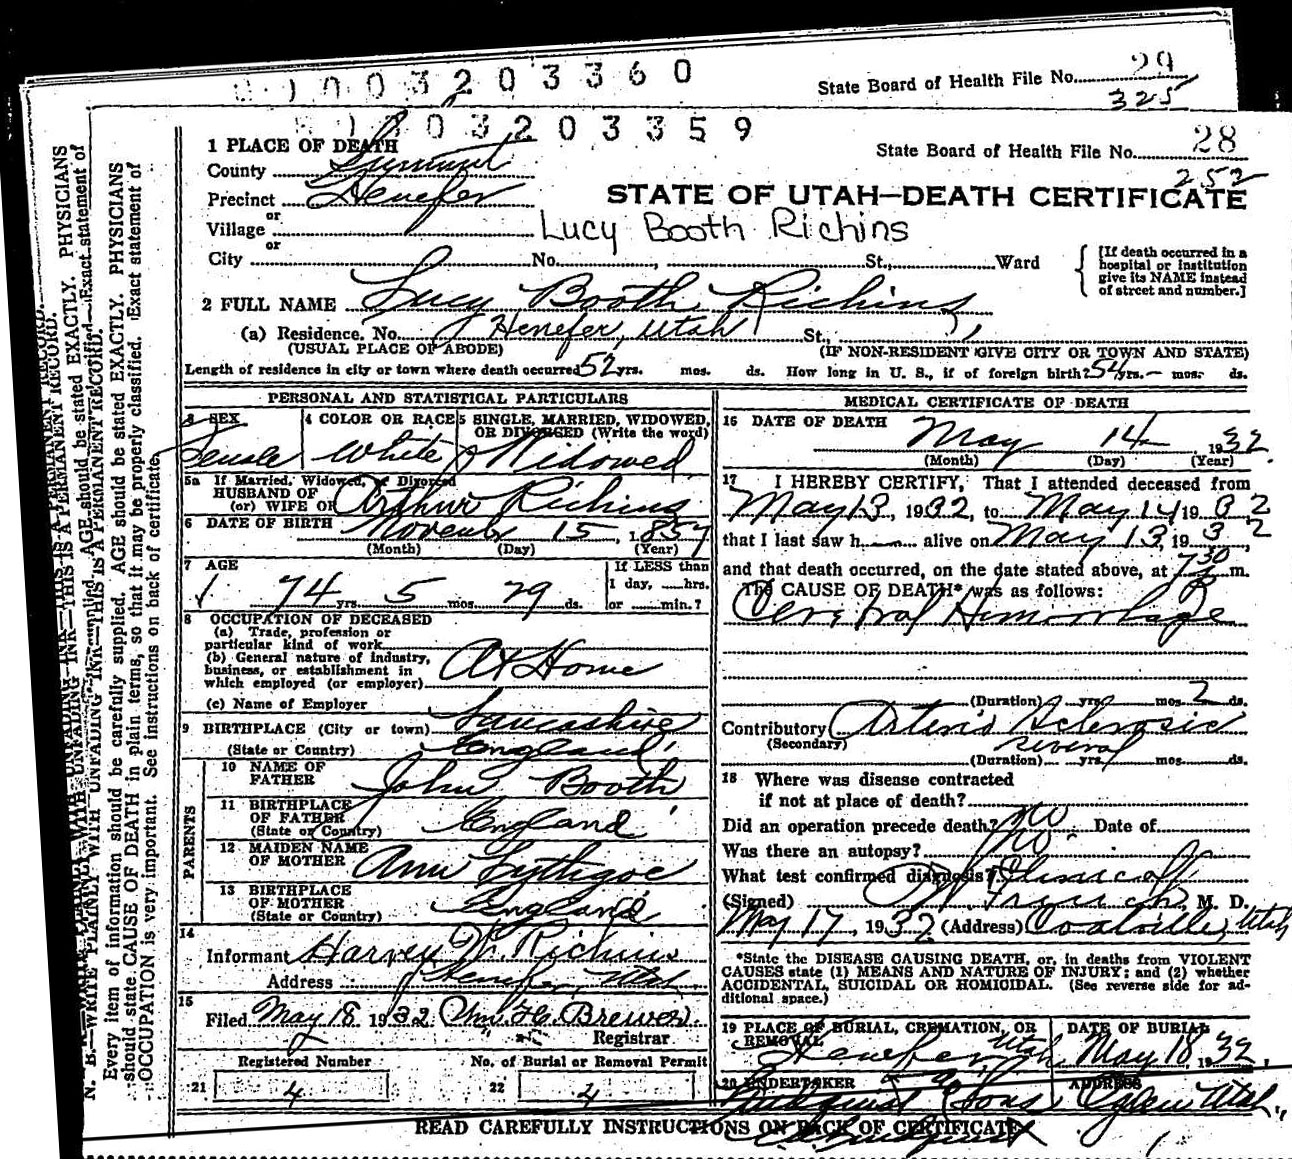 0 0 3 2 0 3 3 6 0
State Board of Health File No. 29
325
0 3 2 0 3 3 5 9
State Board of Health File No. 28
252
1 PLACE OF DEATH
County Summit
Precinct Henefer
or
Village
or
City No. , St., Ward
STATE OF UTAH—DEATH CERTIFICATE
Lucy Booth Richins
[If death occurred in a
hospital or institution
give its NAME instead
of street and number.]
2 FULL NAME Lucy Booth Richins
(a) Residence. No. Henefer, Utah St.,
(USUAL PLACE OF ABODE) (IF NON-RESIDENT GIVE CITY OR TOWN AND STATE)
Length of residence in city or town where death occurred 52 yrs. mos. ds. How long in U. S., if of foreign birth? 54 yrs. — mos. ds.
PERSONAL AND STATISTICAL PARTICULARS
3 SEX 4 COLOR OR RACE 5 SINGLE, MARRIED, WIDOWED,
OR DIVORCED (Write the word)
Female White Widowed
5a If Married, Widowed, or Divorced
HUSBAND OF
(or) WIFE OF Arthur Richins
6 DATE OF BIRTH November 15, 1857
(Month) (Day) (Year)
7 AGE If LESS than
1 day, hrs.
74 yrs. 5 mos. 29 ds. or min.?
8 OCCUPATION OF DECEASED
(a) Trade, profession or
particular kind of work
(b) General nature of industry,
business, or establishment in
which employed (or employer)
At Home
(c) Name of Employer
9 BIRTHPLACE (City or town) Lancashire
(State or Country) England
PARENTS
10 NAME OF
FATHER John Booth
11 BIRTHPLACE
OF FATHER
(State or Country) England
12 MAIDEN NAME
OF MOTHER Ann Lythgoe
13 BIRTHPLACE
OF MOTHER
(State or Country) England
14
Informant Harvey W. Richins
Address Henefer, Utah
15
Filed May 18 1932 Wm. H. Brewer
Registrar
Registered Number No. of Burial or Removal Permit
21 4 22 4
MEDICAL CERTIFICATE OF DEATH
16 DATE OF DEATH May 14 1932
(Month) (Day) (Year)
17 I HEREBY CERTIFY, That I attended deceased from
May 13, 1932, to May 14 1932
that I last saw h alive on May 13, 1932,
and that death occurred, on the date stated above, at 7 30 P m.
The CAUSE OF DEATH* was as follows:
Cerebral Hemorrhage
(Duration) yrs. mos. 2 ds.
Contributory Arterio Sclerosic
(Secondary) several
(Duration) yrs. mos. ds.
18 Where was disease contracted
if not at place of death?
Did an operation precede death? No Date of
Was there an autopsy? No.
What test confirmed diagnosis? Clinical
(Signed) , M. D.
May 17, 1932 (Address) Coalville, Utah
*State the DISEASE CAUSING DEATH, or, in deaths from VIOLENT
CAUSES state (1) MEANS AND NATURE OF INJURY; and (2) whether
ACCIDENTAL, SUICIDAL OR HOMICIDAL. (See reverse side for ad-
ditional space.)
19 PLACE OF BURIAL, CREMATION, OR DATE OF BURIAL
REMOVAL
Henefer, Utah May 18 1932.
20 UNDERTAKER ADDRESS
Lindquist & Sons Ogden Utah.
READ CAREFULLY INSTRUCTIONS ON BACK OF CERTIFICATE
N. B.—WRITE PLAINLY, WITH UNFADING INK—THIS IS A PERMANENT RECORD.
Every item of information should be carefully supplied. AGE should be stated EXACTLY. PHYSICIANS
should state CAUSE OF DEATH in plain terms, so that it may be properly classified. Exact statement of
OCCUPATION is very important. See instructions on back of certificate.